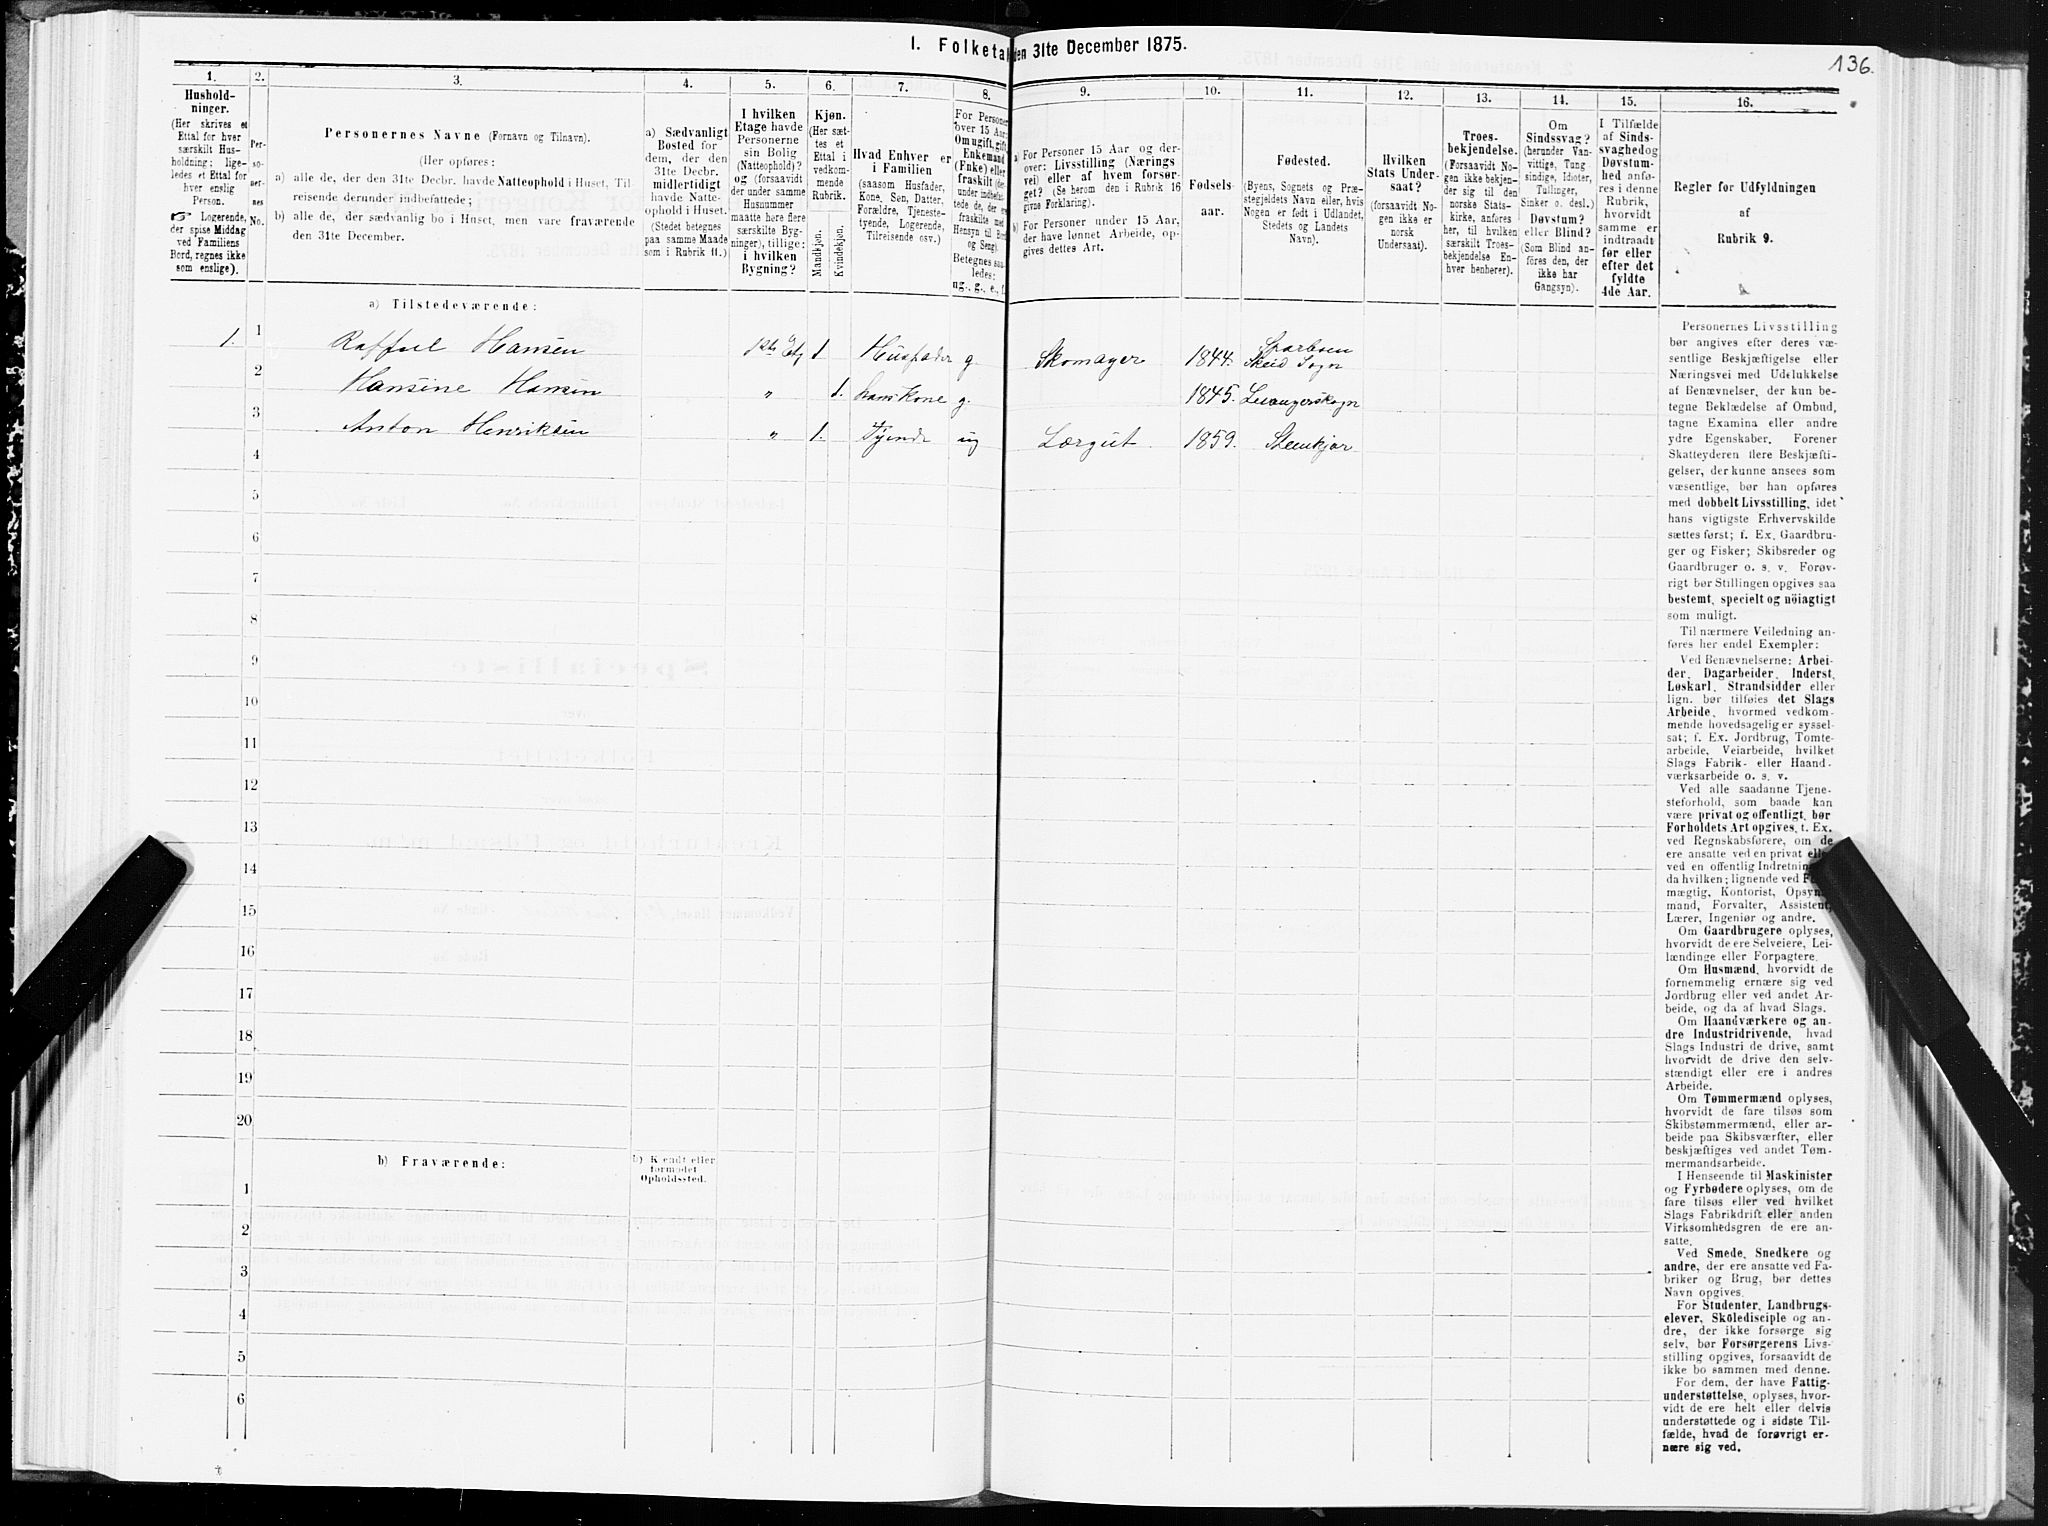 I. Folketal den 31te December 1875.
136.
1.
2.
3.
4.
5.
6.
7.
8.
9.
10.
11.
12.
13.
14.
15.
16.
Hushold-
ninger.
(Her skrives et
Ettal for hver
særskilt Hus-
holdning; lige-
ledes et Ettal for
hver enslig
Person.
☞ Logerende,
der spise Middag
ved Familiens
Bord, regnes ikke
som enslige).
Per-
so-
ner-
nes
No.
Personernes Navne (Fornavn og Tilnavn).
(Her opføres:
a) alle de, der den 31te Decbr. havde Natteophold i Huset, Til-
reisende derunder indbefattede;
b) alle de, der sædvanlig bo i Huset, men vare fraværende
den 31te December.
a) Sædvanligt
Bosted for
dem, der den
31te Decbr.
midlertidigt
havde Natte-
ophold i Huset.
(Stedet betegnes
paa samme Maade
som i Rubrik 11.)
I hvilken
Etage havde
Personerne
sin Bolig
(Natteophold)?
og (forsaavidt
der under samme
Husnummer
maatte høre flere
særskilte Byg-
ninger), tillige:
i hvilken
Bygning?
Kjøn.
(Her sæt-
tes et
Ettal i
vedkom-
mende
Rubrik.
Mandkjøn.
Kvindekjøn.
Hvad Enhver er
i Familien
(saasom Husfader,
Kone, Søn, Datter,
Forældre, Tjeneste-
tyende, Logerende,
Tilreisende osv.)
For Personer
over 15 Aar:
Om ugift, gift,
Enkemand
(Enke) eller
fraskilt (der-
under indbefat-
tede de, der ere
fraskilte med
Hensyn til Bord
og Seng).
Betegnes saa-
ledes:
ug., g., e., f.
a) For Personer 15 Aar og der-
over: Livsstilling (Nærings
vei) eller af hvem forsør-
get? (Se herom den i Rubrik 16
givne Forklaring.)
b) For Personer under 15 Aar,
der have lønnet Arbeide, op-
gives dettes Art.
Fødsels-
aar.
Fødested.
(Byens, Sognets og Præ-
stegjeldets Navn eller, hvis
Nogen er født i Udlandet,
Stedets og Landets
Navn).
Hvilken
Stats Under-
saat?
(forsaavidt No-
gen ikke er
norsk
Undersaat).
Troes-
bekjendelse.
(Forsaavidt No-
gen ikke bekjen-
der sig til den
norske Stats-
kirke, anføres
her, til hvilken
særskilt Troes-
bekjendelse En-
hver henhører).
Om
Sindssvag?
(herunder Van-
vittige, Tung
sindige, Idioter,
Tullinger,
Sinker o. desl.)
Døvstum?
eller Blind?
(Som Blind an-
føres den, der
ikke har
Gangsyn).
I Tilfælde
af Sinds-
svaghed og
Døvstum-
hed anfø-
res i denne
Rubrik,
hvorvidt
samme er
indtraadt
før eller
efter det
fyldte
4de Aar.
Regler for Udfyldningen
af
Rubrik 9.
a) Tilstedeværende:
1. 1 Raffael Hansen 1ste Etg 1. Husfader g. Skomager 1844. Sparboen
Skeid Sogn
2 Hansine Hansen " 1. hans Kone g. 1845. Levangerskogn
3 Anton Henriksen " 1. Tyende ug Lærgut 1859. Steenkjær
4
5
6
7
8
9
10
11
12
13
14
15
16
17
18
19
20
b) Fraværende:
b) Kjendt eller
formodet
Opholdssted.
1
2
3
4
5
6
Personernes Livsstilling
bør angives efter deres væ-
sentlige Beskjæftigelse eller
Næringsvei med Udelukkelse
af Benævnelser, der kun be-
tegne Beklædelse af Ombud,
tagne Examina eller andre
ydre Egenskaber. Forener
Skatteyderen flere Beskjæfti-
gelser, der kunne ansees som
væsentlige, bør han opføres
med dobbelt Livsstilling, idet
hans vigtigste Erhvervskilde
sættes først; f. Ex. Gaardbru-
ger og Fisker; Skibsreder og
Gaardbruger o. s. v. Forøv-
rigt bør Stillingen opgives saa
bestemt, specielt og nöiagtigt
som muligt.
Til nærmere Veiledning an-
føres her endel Exempler:
Ved Benævnelserne: Arbei-
der, Dagarbeider, Inderst,
Løskarl, Strandsidder eller
lign. bør tilføies det Slags
Arbeide, hvormed vedkom-
mende hovedsagelig er syssel-
sat; f. Ex. Jordbrug, Tomte-
arbeide, Veiarbeide, hvilket
Slags Fabrik- eller Haand-
værksarbeide o. s. v.
Ved alle saadanne Tjene-
steforhold, som baade kan
være privat og offentligt, bør
Forholdets Art opgives, t. Ex.
ved Regnskabsførere, om de
ere ansatte ved en privat eller
ved en offentlig Indretning og
da hvilken; lignende ved Fuld-
mægtig, Kontorist, Opsyns-
mand, Forvalter, Assistent,
Lærer, Ingeniør og andre.
Om Gaardbrugere oplyses,
hvorvidt de ere Selveiere, Lei-
lændinge eller Forpagtere.
Om Husmænd, hvorvidt de
fornemmelig ernære sig ved
Jordbrug eller ved andet Ar-
beide, og da af hvad Slags.
Om Haandværkere og an-
dre Industridrivende, hvad
Slags Industri de drive, samt
hvorvidt de drive den selv-
stændigt eller ere i andres
Arbeide.
Om Tømmermænd oplyses,
hvorvidt de fare tilsøs som
Skibstømmermænd, eller ar-
beide paa Skibsværfter, eller
beskjæftiges ved andet Tøm-
mermandsarbeide.
I Henseende til Maskinister
og Fyrbødere oplyses, om de
fare tilsøs eller ved hvilket
Slags Fabrikdrift eller anden
Virksomhedsgren de ere an-
satte.
Ved Smede, Snedkere og
andre, der ere ansatte ved Fa-
briker og Brug, bør dettes
Navn opgives.
For Studenter, Landbrugs-
elever, Skoledisciple og an-
dre, der ikke forsørge sig
selv, bør Forsørgerens Livs-
stilling opgives, forsaavidt de
ikke bo sammen med denne.
For dem, der have Fattig-
understøttelse, oplyses, hvor-
vidt de ere helt eller delvis
understøttede og i sidste Til-
fælde, hvad de forøvrigt er-
nære sig ved.